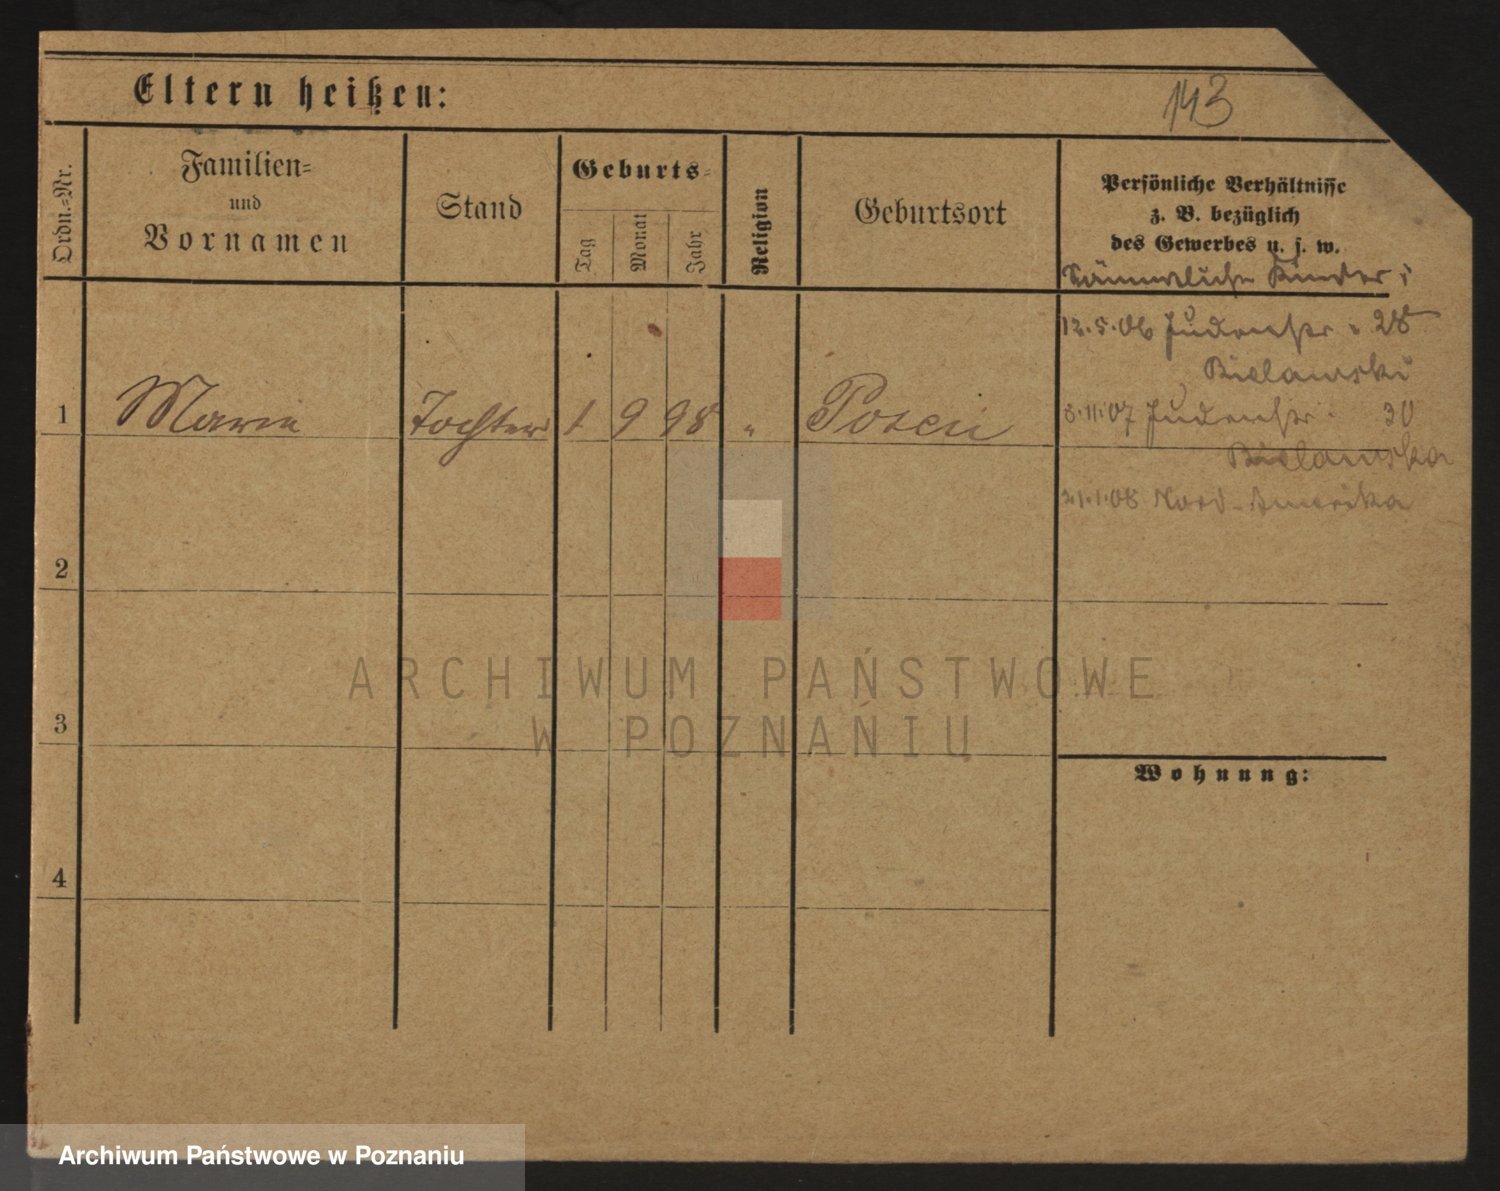 Eltern heißen:
143
Ordn.-Nr.
Familien-
und
Vornamen
Stand
Geburts-
Tag
Monat
Jahr
Religion
Geburtsort
Persönliche Verhältnisse
z. B. bezüglich
des Gewerbes u. s. w.
Sämmtliche Kinder:
12.5.06 Judenstr. 28
Bielawski
1 Marie Tochter 1 9 98 " Posen
5.11.07 Judenstr. 30
Bielawska
21.1.08 Nord-Amerika
2
3
4
Wohnung:
ARCHIWUM PAŃSTWOWE
W POZNANIU
Archiwum Państwowe w Poznaniu